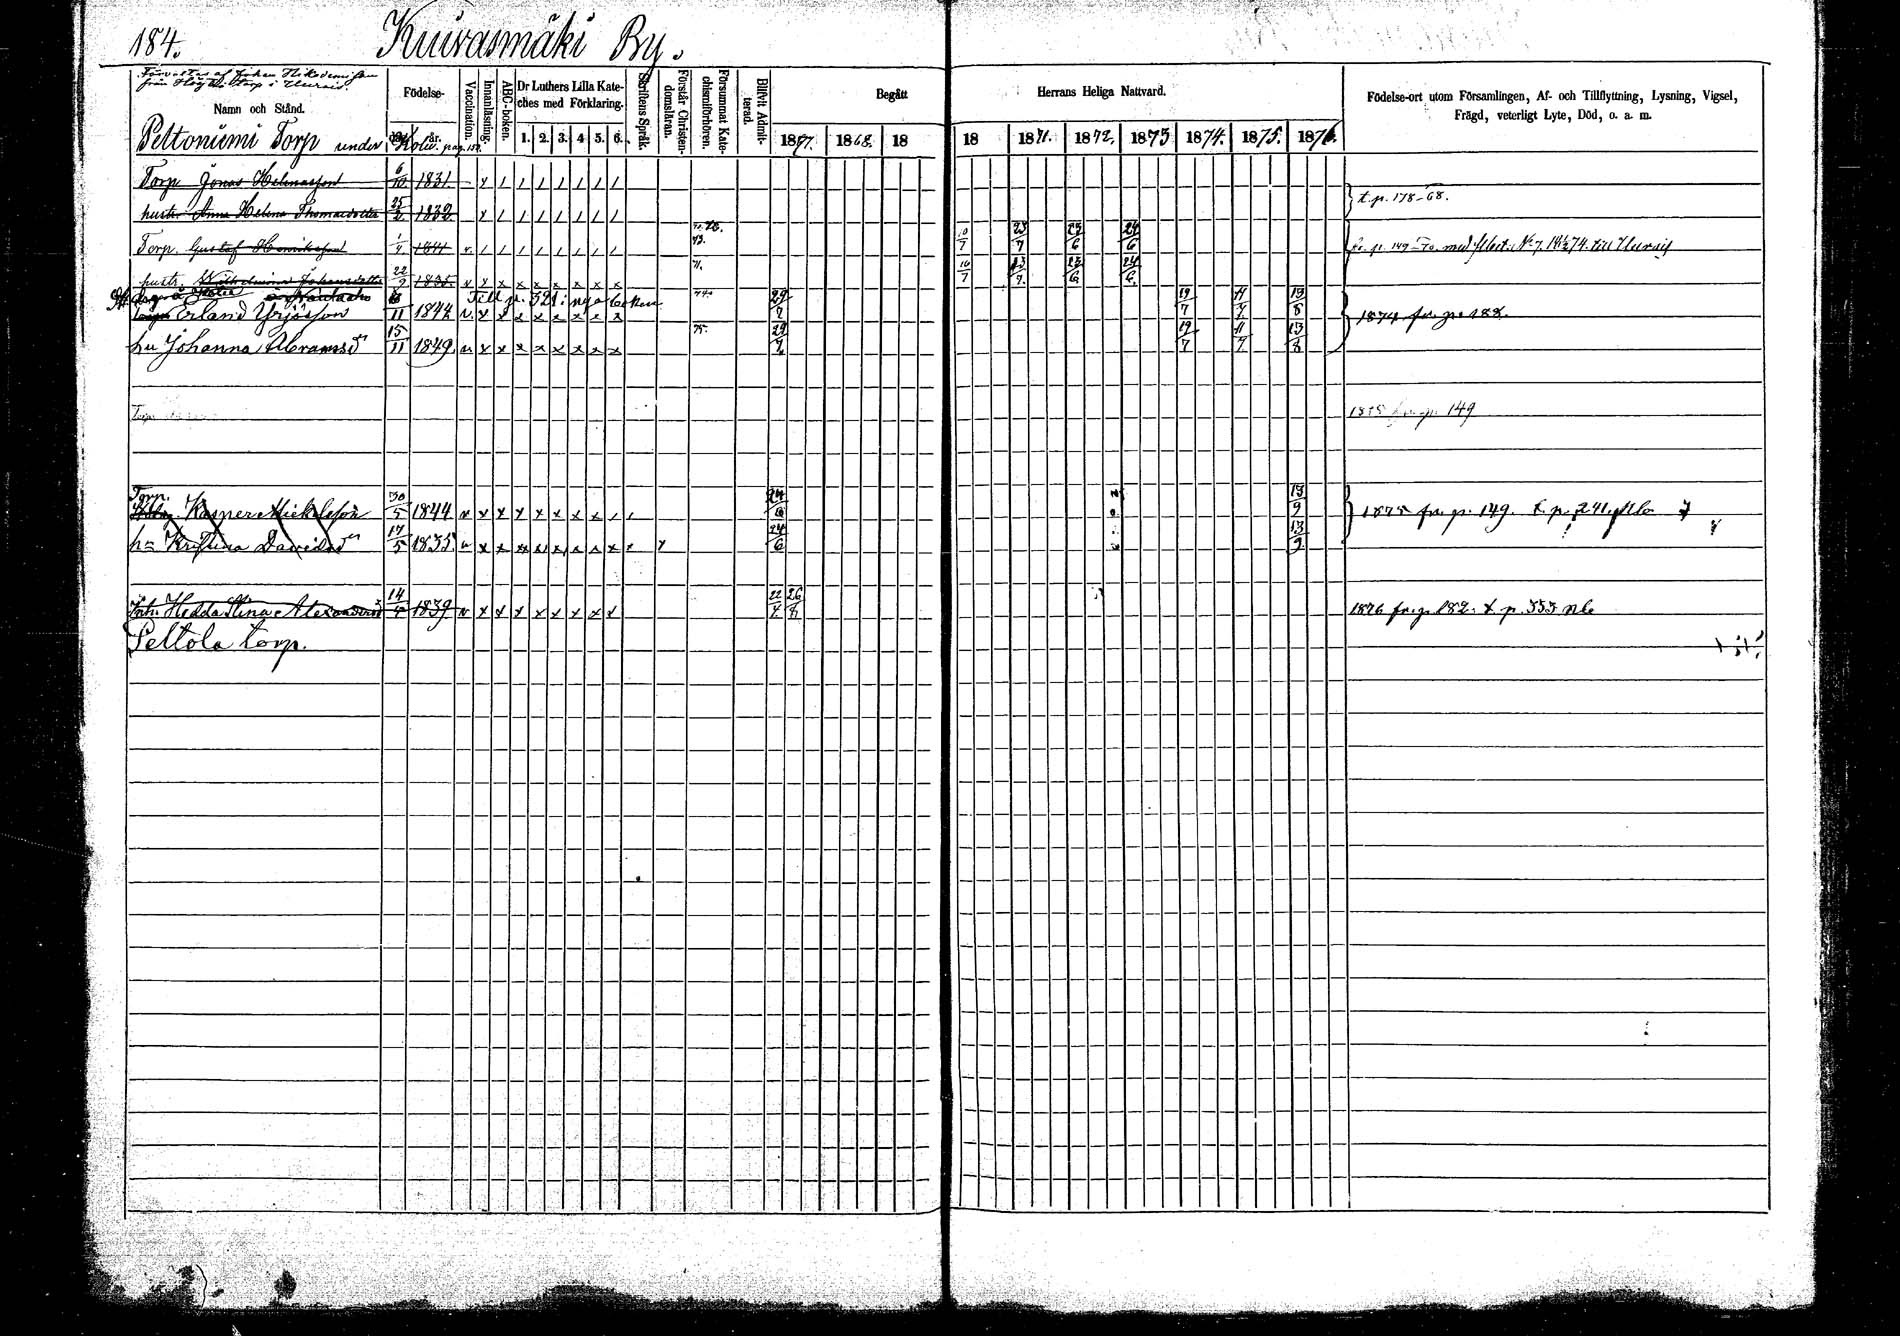 184.
Kuivasmäki By.
Förvaltas af Johan Nikodemisson
från torp i Uurais.
Namn och Stånd.
Födelse-
dag.
år.
Vaccination.
Innanläsning.
ABC-boken.
Dr Luthers Lilla Kate-
ches med Förklaring.
1. 2. 3. 4 5. 6.
Skriftens Språk.
Förstår Christen-
domsläran.
Försummat Kate-
chismiförhören.
Blifvit Admit-
terad.
Begått
Herrans Heliga Nattvard.
1867. 1868. 18
18 1871. 1872. 1873 1874. 1875. 1876.
Födelse-ort utom Församlingen, Af- och Tillflyttning, Lysning, Vigsel,
Frägd, veterligt Lyte, Död, o. a. m.
Peltoniemi Torp under Kolu. pag. 157.
Torp Jonas Helenasson 6/10 1831. t. p. 178-68.
hustr. Anna Helena Thomasdotter 25/2 1832
Torp. Gustaf Henriksson 1/4 1841 73. 10/7 23/7 23/6 24/6 fr. p. 149-70 med attest. No 7. 14/2 74. till Uurais
hustr. Wilhelmina Johansdotter 22/9 1835. 71. 10/7 23/7. 23/6 24/6.
Till p. 321 i nya boken
Erland Yrjösson 11 1844 29/7 19/7 11/7 13/8 1874 fr. p. 188.
hu Johanna Abramsdr 15/11 1849. 75. 29/7. 19/7 11/7 13/8
Torp. 149
Torp.
Kasper Mickelsson 30/5 1844 24/6 13/9 1875 fr. p. 149. t. p. 241
hu Kristina Davidsdr 17/5 1835. 24/6 13/9
Hedda Stina Alexandersdr 14/4 1839 22/4 26/8 1876 fr. p. 182. t. p. 553 nb
Peltola torp.